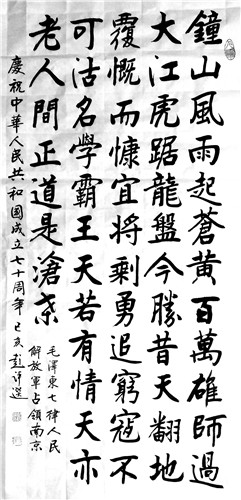 鐘山風雨起蒼黄百萬雄師過
大江虎踞龍盤今勝昔天翻地
覆慨而慷宜將剩勇追窮寇不
可沽名學霸王天若有情天亦
老人間正道是滄桒
毛澤東七律人民
解放軍占領南京
慶祝中華人民共和國成立七十周年己亥彭